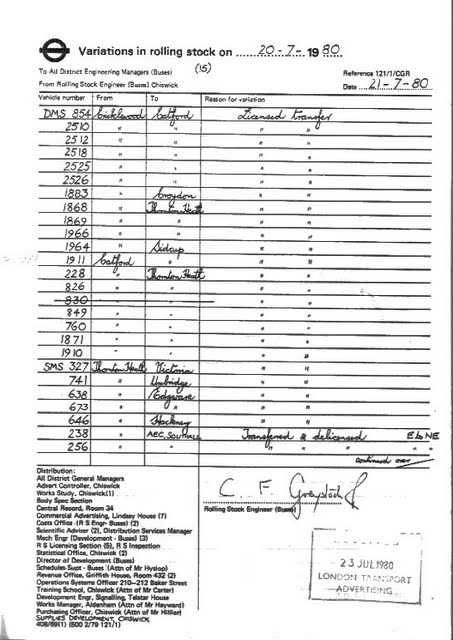 Variations in rolling stock on 20-7-1980
To All District Engineering Managers (Buses) (15) Reference 121/1/CGR
From Rolling Stock Engineer (Buses) Chiswick Date 21-7-80
Vehicle number From To Reason for variation
DMS 854 Cricklewood Catford Licensed transfer
2510 " " " "
2512 " " " "
2518 " " " "
2525 " " " "
2526 " " " "
1883 " Croydon " "
1868 " Thornton Heath " "
1869 " " " "
1966 " " " "
1964 " Sidcup " "
1911 Catford " " "
228 " Thornton Heath " "
826 " " " "
830 " " " "
849 " " " "
760 " " " "
1871 " " " "
1910 " " " "
SMS 327 Thornton Heath Victoria " "
741 " Uxbridge " "
638 " Edgware " "
673 " " " "
646 " Hackney " "
238 " AEC, Southall Transferred & delicensed E to NE
256 " " " " " "
continued over
Distribution:
All District General Managers
Advert Controller, Chiswick
Works Study, Chiswick(1)
Body Spec Section
Central Record, Room 34
Commercial Advertising, Lindsay House (7)
Costs Office (R S Engr- Buses) (2)
Scientific Adviser (2), Distribution Services Manager
Mech Engr (Development - Buses) (3)
R S Licensing Section (5), R S Inspection
Statistical Office, Chiswick (2)
Director of Development (Buses)
Schedules Supt - Buses (Attn of Mr Hyslop)
Revenue Office, Griffith House, Room 432 (2)
Operations Systems Officer 210-212 Baker Street
Training School, Chiswick (Attn of Mr Carter)
Development Engr, Signalling, Telstar House
Works Manager, Aldenham (Attn of Mr Hayward)
Purchasing Officer, Chiswick (Attn of Mr Hillier)
SUPPLIES DEVELOPMENT, CHISWICK
408/89(1) (500 2/79 121/1)
C. F.
Rolling Stock Engineer (Buses)
23 JUL 1980
LONDON TRANSPORT
ADVERTISING